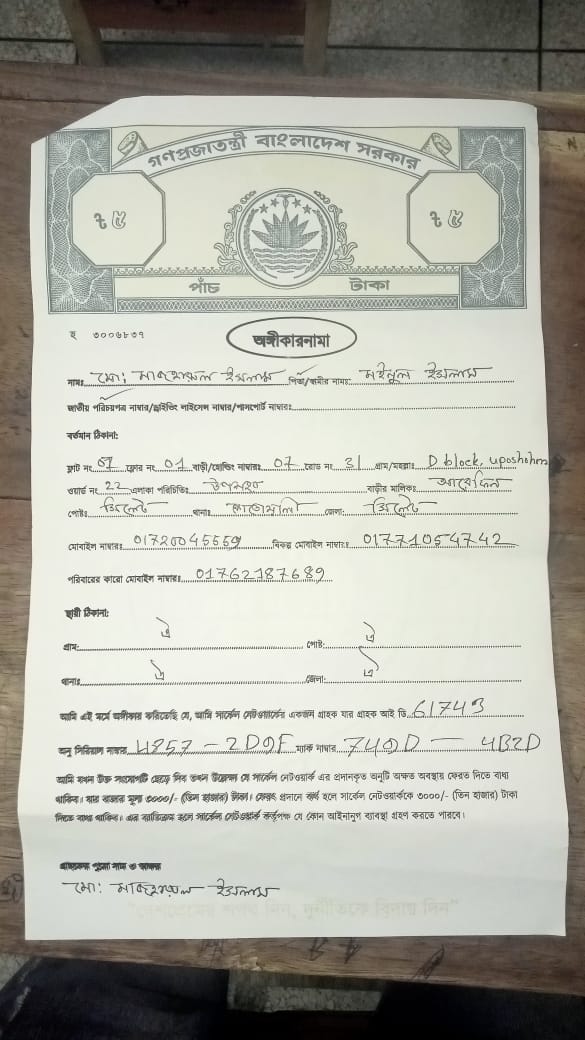 গণপ্রজাতন্ত্রী বাংলাদেশ সরকার
৳ ৫ ৳ ৫
পাঁচ টাকা
হ ৩০০৬৮৩৭
অঙ্গীকারনামা
নামঃ মো: মাজহারুল ইসলাম পিতা/স্বামীর নামঃ মইনুল ইসলাম
জাতীয় পরিচয়পত্র নাম্বার/ড্রাইভিং লাইসেন্স নাম্বার/পাসপোর্ট নাম্বারঃ
বর্তমান ঠিকানা:
ফ্লাট নং 01 ফ্লোর নং 01 বাড়ী/হোল্ডিং নাম্বারঃ 07 রোড নং 31 গ্রাম/মহল্লাঃ D block, uposhohor
ওয়ার্ড নং 22 এলাকা পরিচিতিঃ উপশহর বাড়ীর মালিকঃ আবেদিন
পোষ্টঃ সিলেট থানাঃ কোতোয়ালি জেলা: সিলেট
মোবাইল নাম্বারঃ 01720045559 বিকল্প মোবাইল নাম্বারঃ 01771054742
পরিবারের কারো মোবাইল নাম্বারঃ 01762187689
স্থায়ী ঠিকানা:
গ্রাম: ঐ পোষ্ট: ঐ
থানাঃ ঐ জেলা: ঐ
আমি এই মর্মে অঙ্গীকার করিতেছি যে, আমি সার্কেল নেটওয়ার্কের একজন গ্রাহক যার গ্রাহক আই ডি 61743
অনু সিরিয়াল নাম্বার 4857 - 2D9F ম্যাক নাম্বার 749D - 4B2D
আমি যখন উক্ত সংযোগটি ছেড়ে দিব তখন উল্লেখ্য যে সার্কেল নেটওয়ার্ক এর প্রদানকৃত অনুটি অক্ষত অবস্থায় ফেরত দিতে বাধ্য
থাকিব। যার বাজার মূল্য ৩০০০/- (তিন হাজার) টাকা। ফেরৎ প্রদানে ব্যর্থ হলে সার্কেল নেটওয়ার্ককে ৩০০০/- (তিন হাজার) টাকা
দিতে বাধ্য থাকিব। এর ব্যতিক্রম হলে সার্কেল নেটওয়ার্ক কর্তৃপক্ষ যে কোন আইনানুগ ব্যবস্থা গ্রহণ করতে পারবে।
গ্রাহকের পুরো নাম ও স্বাক্ষর
মো: মাজহারুল ইসলাম
"দেশপ্রেমের শপথ নিন, দুর্নীতিকে বিদায় দিন"